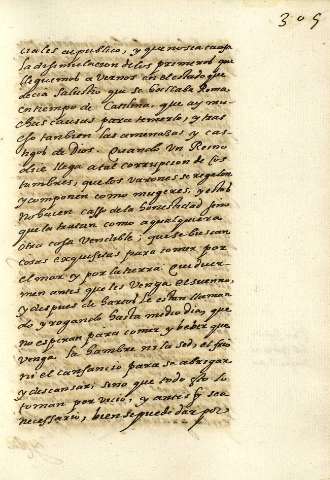 305
ciales al publico, y que no sea causa
la disimulacion de los primeros que
lleguemos a vernos en el estado que
decia Salustio que se hallaba Roma
en tiempo de Catilina, que ay mu
chas causas para temerlo, y tras
esto tambien las amenazas y cas
tigos de Dios. Quando un Reino
dice llega a tal corrupcion de cos
tumbres, que los varones se regalan
y componen como mugeres, y estos
no hacen caso de la honestidad sino
que la tratan como a qualquiera
otra cosa vendible; que se buscan
cosas exquisitas para comer por
el mar, y por la tierra. Que duer
men antes que les venga el sueño,
y despues de hartos le estan llaman
do, y rogando hasta medio dia, que
no esperan para comer, y beber que
venga la hambre ni la sed, el frio
ni el cansancio para se abrigar
y descansar; sino que todo eso lo
toman por vicio, y antes q̃ sea
necessario, bien se puede dar por